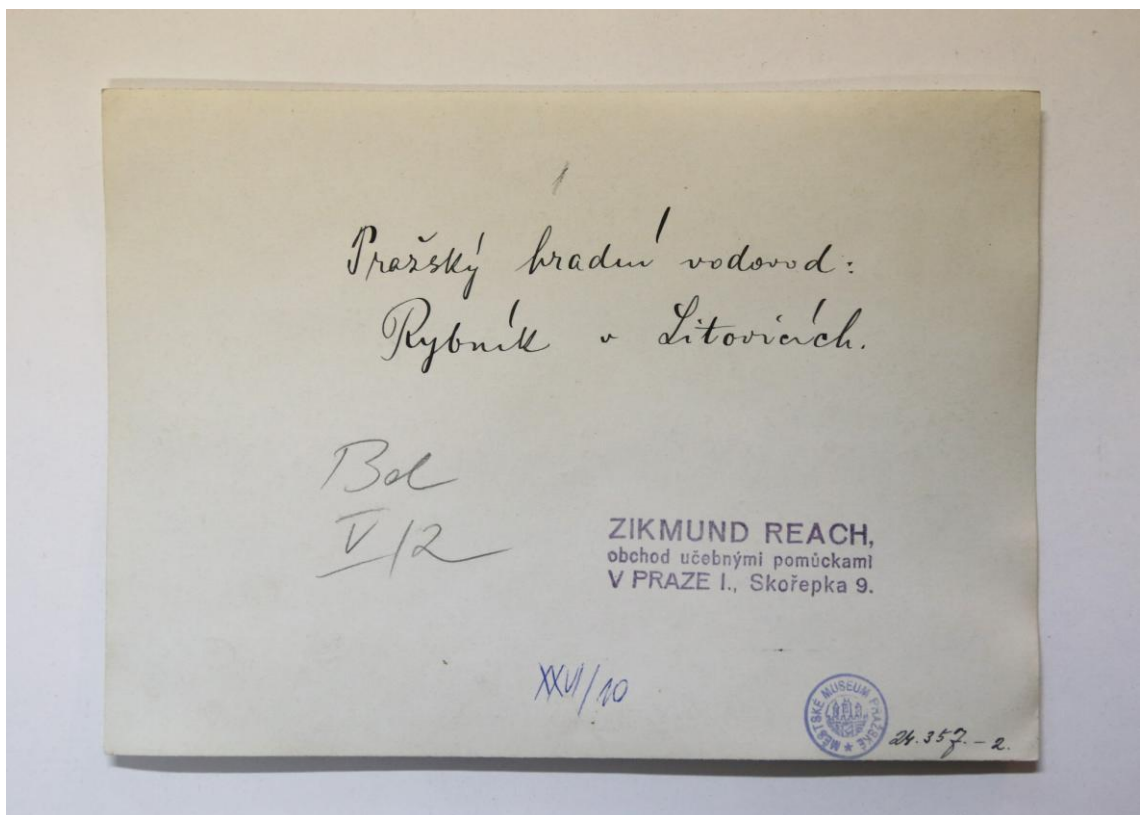 Pražský hradní vodovod:
Rybník v Litovicích.
V/2
ZIKMUND REACH,
obchod učebnými pomůckami
V PRAZE I., Skořepka 9.
XXVI/10
MĚSTSKÉ MUSEUM PRAŽSKÉ
24.357.-2.